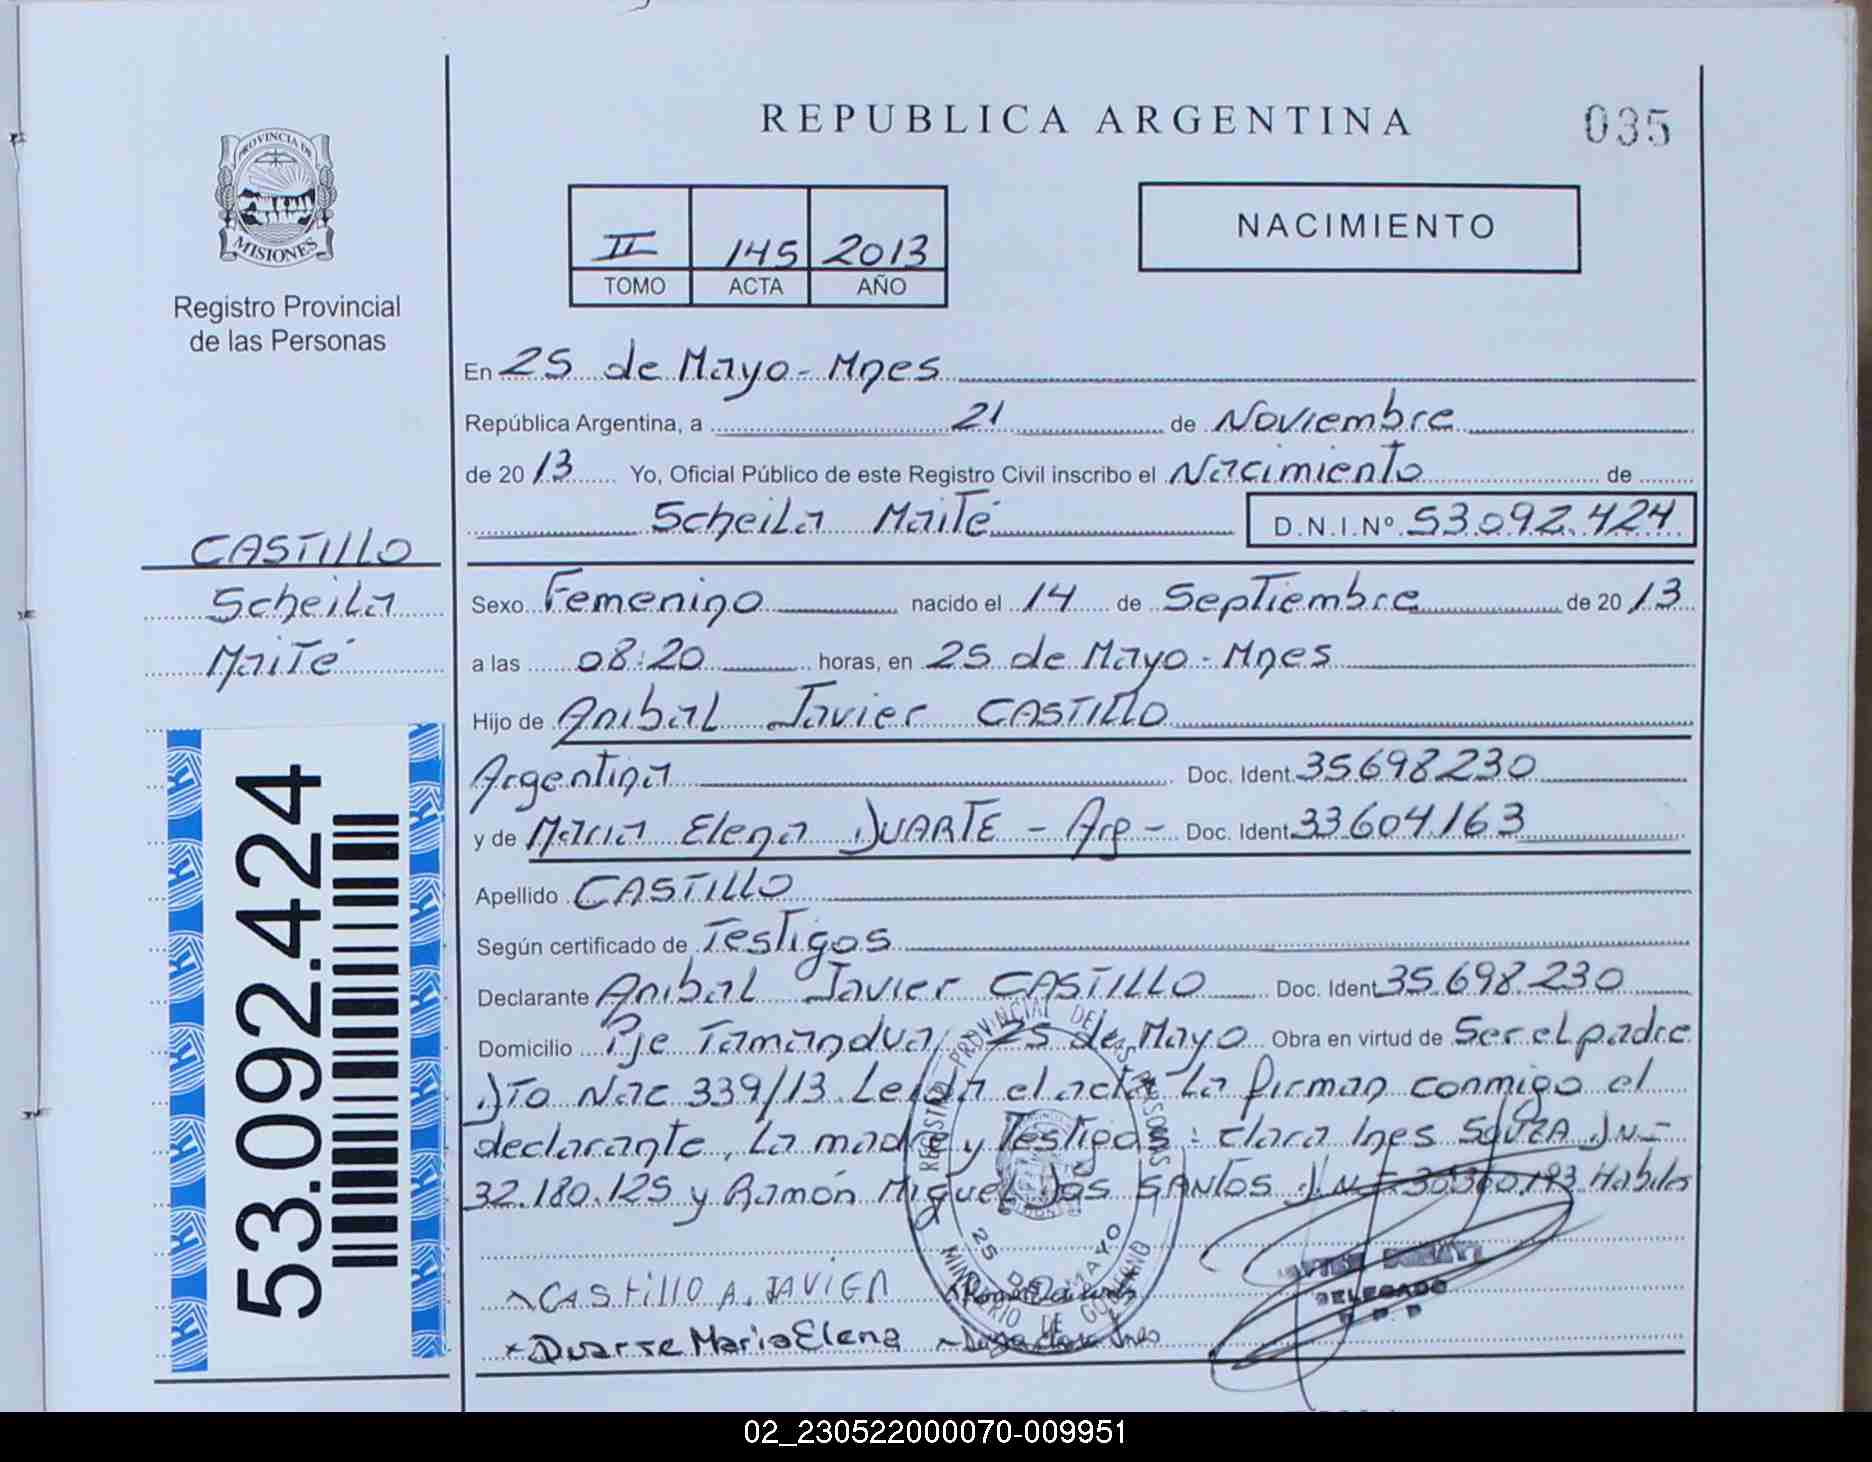 REPUBLICA ARGENTINA
035
PROVINCIA DE
MISIONES
Registro Provincial
de las Personas
II 145 2013
TOMO ACTA AÑO
NACIMIENTO
En 25 de Mayo - Mnes
República Argentina, a 21 de Noviembre
de 2013 Yo, Oficial Público de este Registro Civil inscribo el Nacimiento de
Scheila Maité D.N.I.Nº 53.092.424
CASTILLO
Scheila
Maité
Sexo Femenino nacido el 14 de Septiembre de 2013
a las 08:20 horas, en 25 de Mayo - Mnes
Hijo de Anibal Javier CASTILLO
Argentina Doc. Ident. 35698230
y de Maria Elena DUARTE - Arg - Doc. Ident. 33604163
Apellido CASTILLO
Según certificado de Testigos
Declarante Anibal Javier CASTILLO Doc. Ident 35.698.230
Domicilio Pje Tamandua, 25 de Mayo Obra en virtud de Ser el padre
Dto Nac 339/13. Leida el acta La firman conmigo el
declarante, La madre y Testigos: Clara Ines SOUZA DN=
32.180.125 y Ramón Miguel Dos SANTOS DN= 30360.193 Habiles
53.092.424
REGISTRO PROVINCIAL DE LAS PERSONAS
25 DE MAYO
MINISTERIO DE GOBIERNO
CAStillo A. JAVIER
Duarte Maria Elena
DELEGADO
R.P.P
02_230522000070-009951